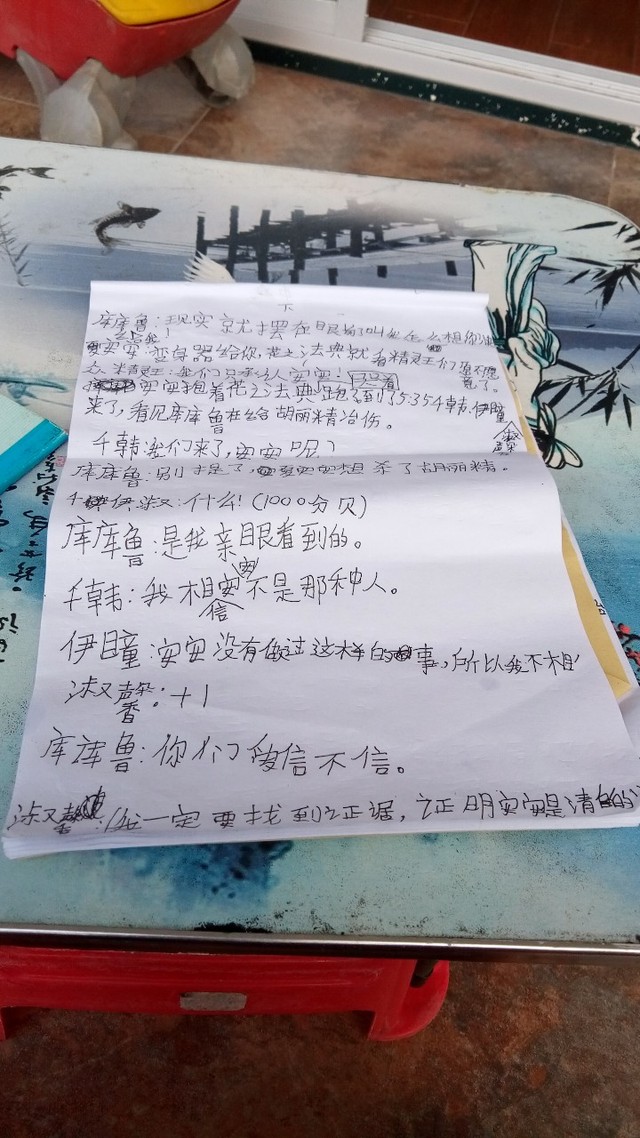 下
库库鲁:现实就摆在眼前叫我怎么相你
安安:变身器给你,花之法典就看精灵王们愿不愿意了。
众精灵王:我们只承认安安!
安安抱着花之法典跑了到了15:35千韩、伊瞳、淑馨
来了,看见库库鲁在给胡丽精冶伤。
千韩:我们来了,安安呢?
库库鲁:别提了,安安想杀了胡丽精。
千伊淑:什么!(1000分贝)
库库鲁:是我亲眼看到的。
千韩:我相信安安不是那种人。
伊瞳:安安没有做过这样的事,所以我不相
淑馨:+1
库库鲁:你们爱信不信。
淑馨:(我一定要找到证据,证明安安是清白的